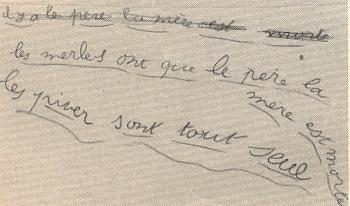 il y a le pere la mère est morte
les merles ont que le père la
mère est morte
les piver sont tout seul